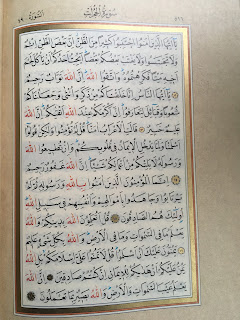 ٥١٦ سُورَةُ الْحُجُرَاتِ السورة ٤٩
يَٓا اَيُّهَا الَّذ۪ينَ اٰمَنُوا اجْتَنِبُوا كَث۪يرًا مِنَ الظَّنِّۘ اِنَّ بَعْضَ الظَّنِّ اِثْمٌ
وَلَا تَجَسَّسُوا وَلَا يَغْتَبْ بَعْضُكُمْ بَعْضًاۜ اَيُحِبُّ اَحَدُكُمْ اَنْ يَأْكُلَ لَحْمَ
اَخ۪يهِ مَيْتًا فَكَرِهْتُمُوهُۜ وَاتَّقُوا اللّٰهَۜ اِنَّ اللّٰهَ تَوَّابٌ رَح۪يمٌ
يَٓا اَيُّهَا النَّاسُ اِنَّا خَلَقْنَاكُمْ مِنْ ذَكَرٍ وَاُنْثٰى وَجَعَلْنَاكُمْ
شُعُوبًا وَقَبَٓائِلَ لِتَعَارَفُواۜ اِنَّ اَكْرَمَكُمْ عِنْدَ اللّٰهِ اَتْقٰيكُمْۜ اِنَّ اللّٰهَ
عَل۪يمٌ خَب۪يرٌ قَالَتِ الْاَعْرَابُ اٰمَنَّاۜ قُلْ لَمْ تُؤْمِنُوا وَلٰكِنْ قُولُٓوا
اَسْلَمْنَا وَلَمَّا يَدْخُلِ الْا۪يمَانُ ف۪ي قُلُوبِكُمْۜ وَاِنْ تُط۪يعُوا اللّٰهَ
وَرَسُولَهُ لَا يَلِتْكُمْ مِنْ اَعْمَالِكُمْ شَيْـًٔاۜ اِنَّ اللّٰهَ غَفُورٌ رَح۪يمٌ
اِنَّمَا الْمُؤْمِنُونَ الَّذ۪ينَ اٰمَنُوا بِاللّٰهِ وَرَسُولِه۪ ثُمَّ لَمْ
يَرْتَابُوا وَجَاهَدُوا بِاَمْوَالِهِمْ وَاَنْفُسِهِمْ ف۪ي سَب۪يلِ اللّٰهِۜ
اُو۬لٰٓئِكَ هُمُ الصَّادِقُونَ قُلْ اَتُعَلِّمُونَ اللّٰهَ بِد۪ينِكُمْ وَاللّٰهُ
يَعْلَمُ مَا فِي السَّمٰوَاتِ وَمَا فِي الْاَرْضِۜ وَاللّٰهُ بِكُلِّ شَيْءٍ عَل۪يمٌ
يَمُنُّونَ عَلَيْكَ اَنْ اَسْلَمُواۜ قُلْ لَا تَمُنُّوا عَلَيَّ اِسْلَامَكُمْۚ بَلِ اللّٰهُ
يَمُنُّ عَلَيْكُمْ اَنْ هَدٰيكُمْ لِلْا۪يمَانِ اِنْ كُنْتُمْ صَادِق۪ينَ اِنَّ اللّٰهَ
يَعْلَمُ غَيْبَ السَّمٰوَاتِ وَالْاَرْضِۜ وَاللّٰهُ بَص۪يرٌ بِمَا تَعْمَلُونَ